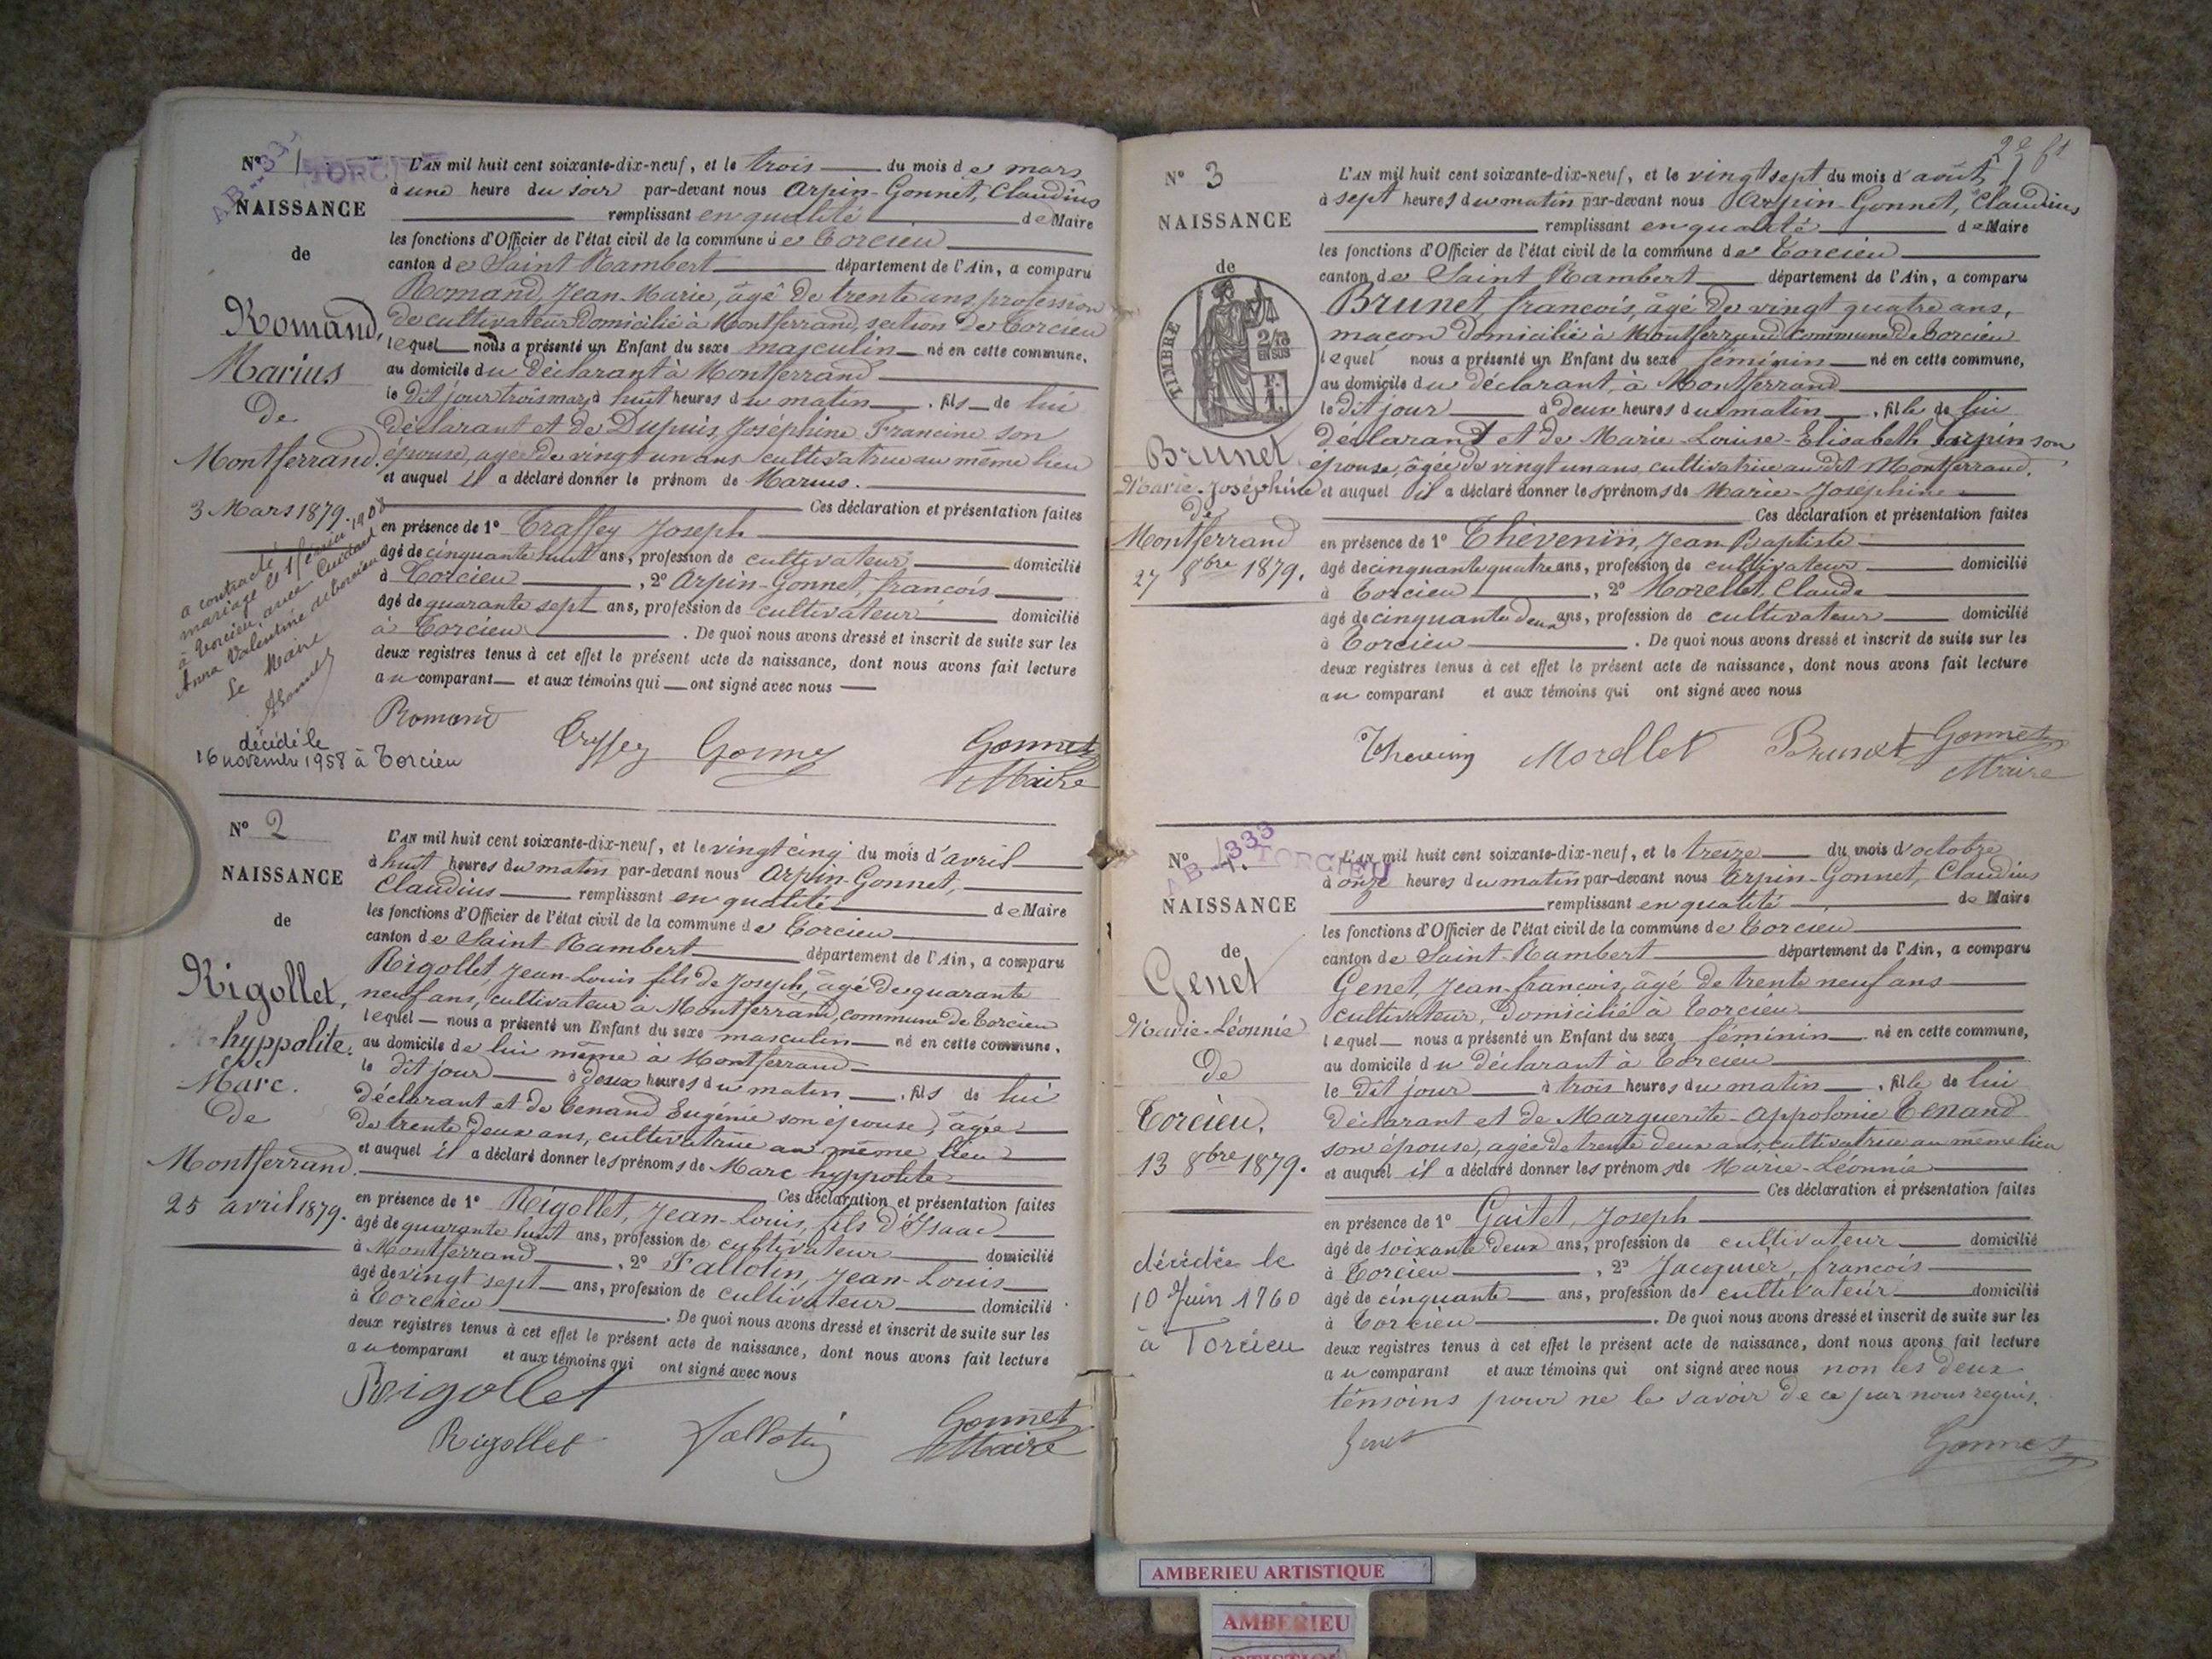 N° 1
AB..331
TORCIEU
NAISSANCE
de
Romand,
Marius
De
Montferrand.
3 Mars 1879.
a contracté
mariage le 1er février 1908
à Torcieu, avec
Anna Valentine de torcieu
Le Maire
décédé le
16 novembre 1958 à Torcieu
L'AN mil huit cent soixante-dix-neuf, et le trois du mois de mars
à une heure du soir par-devant nous Arpin-Gonnet, Claudius
remplissant en qualité de Maire
les fonctions d'Officier de l'état civil de la commune de Torcieu
canton de Saint Rambert département de l'Ain, a comparu
Romand, Jean-Marie, âgé de trente ans, profession
de cultivateur domicilié à Montferrand, section de Torcieu
lequel nous a présenté un Enfant du sexe masculin né en cette commune,
au domicile du déclarant à Montferrand
le dit jour trois mars à huit heures du matin, fils de lui
déclarant et de Dupuis, Joséphine Francine son
épouse, agée de vingt un ans cultivatrice au même lieu
et auquel il a déclaré donner le prénom de Marius.
Ces déclaration et présentation faites
en présence de 1° Traffey Joseph
âgé de cinquante huit ans, profession de cultivateur domicilié
à Torcieu, 2° Arpin-Gonnet, françois
âgé de quarante sept ans, profession de cultivateur domicilié
à Torcieu. De quoi nous avons dressé et inscrit de suite sur les
deux registres tenus à cet effet le présent acte de naissance, dont nous avons fait lecture
au comparant et aux témoins qui ont signé avec nous
Romand Traffey Gonnet Gonnet
Maire
N° 2
NAISSANCE
de
Rigollet,
hyppolite.
Marc.
de
Montferrand.
25 avril 1879.
L'AN mil huit cent soixante-dix-neuf, et le vingt cinq du mois d'avril
à huit heures du matin par-devant nous Arpin-Gonnet,
Claudius remplissant en qualité de Maire
les fonctions d'Officier de l'état civil de la commune de Torcieu
canton de Saint Rambert département de l'Ain, a comparu
Rigollet, Jean-Louis fils de Joseph, âgé de quarante
neuf ans, cultivateur à Montferrand, commune de Torcieu
lequel nous a présenté un Enfant du sexe masculin né en cette commune,
au domicile de lui même à Montferrand
le dit jour à deux heures du matin, fils de lui
déclarant et de Tenand Eugénie son épouse, âgée
de trente deux ans, cultivatrice au même lieu
et auquel il a déclaré donner les prénoms de Marc hyppolite
Ces déclaration et présentation faites
en présence de 1° Rigollet, Jean-Louis, fils d'Isaac
âgé de quarante huit ans, profession de cultivateur domicilié
à Montferrand, 2° Fallotin, Jean-Louis
âgé de vingt sept ans, profession de cultivateur domicilié
à Torcieu. De quoi nous avons dressé et inscrit de suite sur les
deux registres tenus à cet effet le présent acte de naissance, dont nous avons fait lecture
au comparant et aux témoins qui ont signé avec nous
Rigollet
Rigollet Fallotin Gonnet
Maire
N° 3
NAISSANCE
de
TIMBRE
2/10
EN SUS
Brunet
Marie-Joséphine
de
Montferrand
27 8bre 1879.
L'AN mil huit cent soixante-dix-neuf, et le vingt sept du mois d'août
à sept heures du matin par-devant nous Arpin-Gonnet, Claudius
remplissant en qualité de Maire
les fonctions d'Officier de l'état civil de la commune de Torcieu
canton de Saint Rambert département de l'Ain, a comparu
Brunet, françois, âgé de vingt quatre ans,
maçon domicilié à Montferrand commune de Torcieu
lequel nous a présenté un Enfant du sexe féminin né en cette commune,
au domicile du déclarant, à Montferrand
le dit jour à deux heures du matin, fille de lui
déclarant et de Marie-Louise-Elisabeth Carpin son
épouse, âgée de vingt un ans, cultivatrice au dit Montferrand.
et auquel il a déclaré donner les prénoms de Marie-Joséphine
Ces déclaration et présentation faites
en présence de 1° Thévenin, Jean Baptiste
âgé de cinquante quatre ans, profession de cultivateur domicilié
à Torcieu, 2° Morellet, Claude
âgé de cinquante deux ans, profession de cultivateur domicilié
à Torcieu. De quoi nous avons dressé et inscrit de suite sur les
deux registres tenus à cet effet le présent acte de naissance, dont nous avons fait lecture
au comparant et aux témoins qui ont signé avec nous
Thevenin Morellet Brunet Gonnet
Maire
N° 4.
AB../333
TORCIEU
NAISSANCE
de
Genet
Marie-Léonnie
De
Torcieu.
13 8bre 1879.
décédée le
10 Juin 1960
à Torcieu
L'AN mil huit cent soixante-dix-neuf, et le treize du mois d'octobre
à onze heures du matin par-devant nous Arpin-Gonnet, Claudius
remplissant en qualité de Maire
les fonctions d'Officier de l'état civil de la commune de Torcieu
canton de Saint-Rambert département de l'Ain, a comparu
Genet, Jean-françois, âgé de trente neuf ans
cultivateur, domicilié à Torcieu
lequel nous a présenté un Enfant du sexe féminin né en cette commune,
au domicile du déclarant à Torcieu
le dit jour à trois heures du matin, fille de lui
déclarant et de Marguerite-Appolonie Tenand
son épouse, agée de trente deux ans, cultivatrice au même lieu
et auquel il a déclaré donner les prénoms de Marie-Léonnie
Ces déclaration et présentation faites
en présence de 1° Gaitet, Joseph
âgé de soixante deux ans, profession de cultivateur domicilié
à Torcieu, 2° Jacquier, françois
âgé de cinquante ans, profession de cultivateur domicilié
à Torcieu. De quoi nous avons dressé et inscrit de suite sur les
deux registres tenus à cet effet le présent acte de naissance, dont nous avons fait lecture
au comparant et aux témoins qui ont signé avec nous non les deux
témoins pour ne le savoir de ce par nous requis.
Genet Gonnet
AMBERIEU ARTISTIQUE
AMBERIEU
ARTISTIQUE